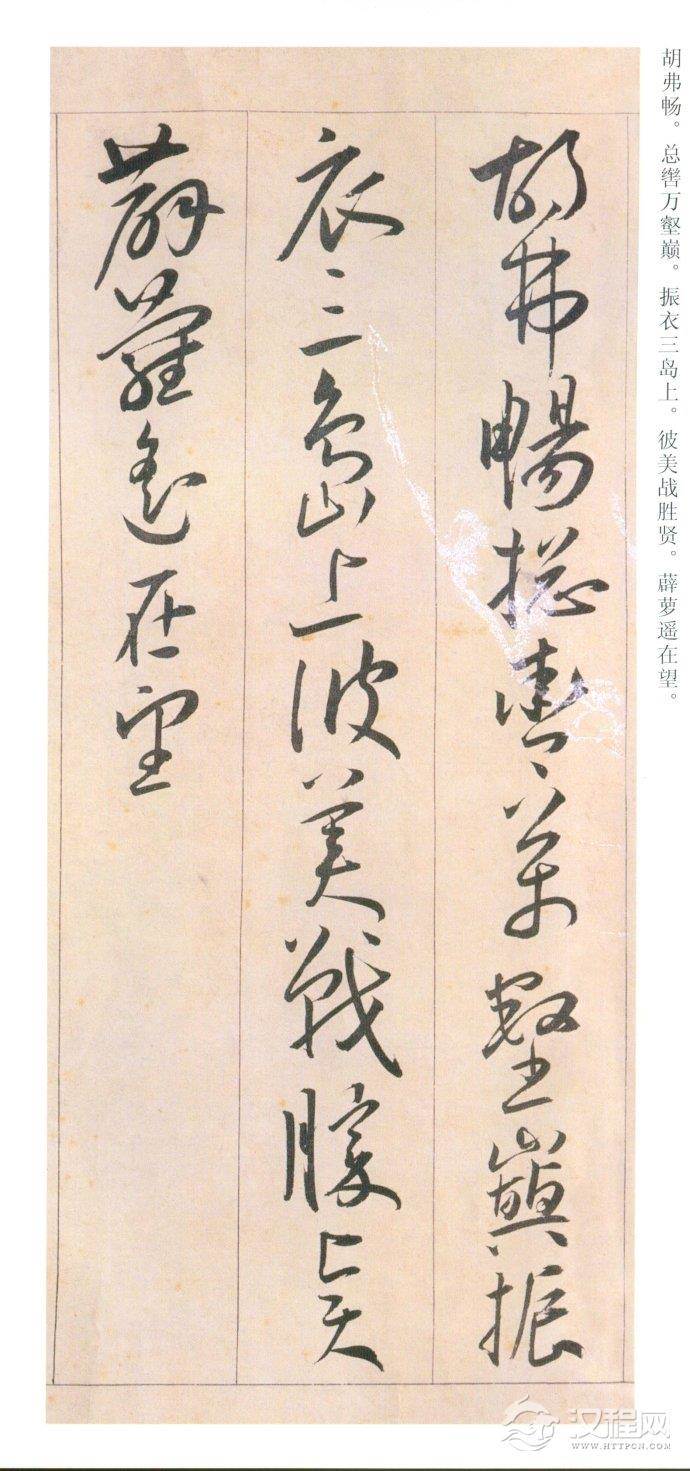 胡弗畅。总辔万壑巅。振衣三岛上。彼美战胜贤。薜萝遥在望。
胡弗暢揔轡萬壑巔振
衣三島上彼美戰勝賢
薜蘿遥在望
汉程网
WWW.HTTPCN.COM